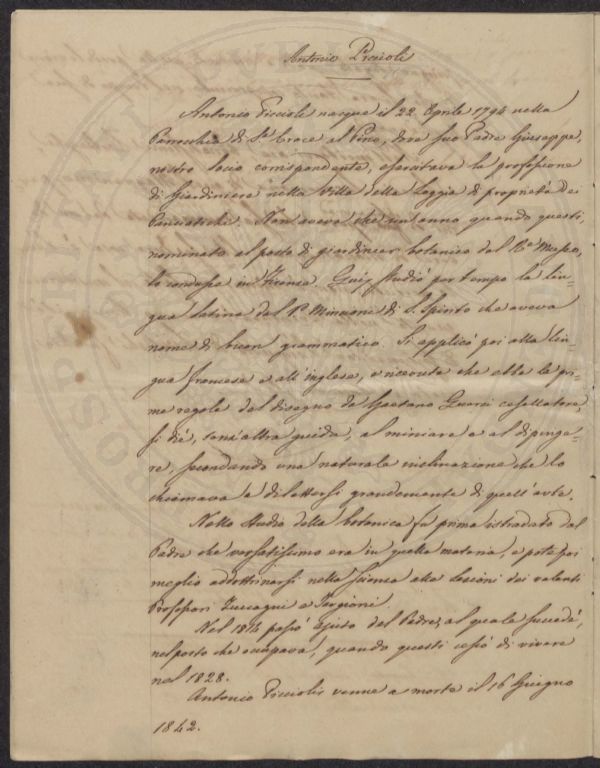 Antonio Piccioli
Antonio Piccioli nacque il 22 Aprile 1794 nella
Parrocchia di Sa. Croce al Pino, dove suo Padre Giuseppe,
nostro socio corrispondente, esercitava la professione
di Giardiniere nella Villa della Loggia di proprietà dei
Panciatichi. Non aveva che un'anno quando questi,
nominato al posto di giardinier botanico del Rl. Museo,
lo condusse in Firenze. Quiv studiò per tempo la lin-
gua latina dal Pe. Minucci di S. Spirito che aveva
nome di buon grammatico. Si applicò poi alla lin-
gua francese e all'inglese, e ricevute che ebbe le pri-
me regole del disegno da Gaetano Guerzi cesellatore,
si diè, senz'altra guida, al miniare e al dipinge-
re, secondando una naturale inclinazione che lo
chiamava a dilettarsi grandemente di quell'arte.
Nello studio della botanica fu prima istradato dal
Padre che versatissimo era in quella materia, e potè poi
meglio addottrinarsi nella scienza alle Lezioni dei valenti
Professori Zuccagni e Targioni.
Nel 1816 passò Ajuto del Padre, al quale succedè,
nel posto che occupava, quando questi cessò di vivere
nel 1828.
Antonio Piccioli venne a morte il 16 Giugno
1842.